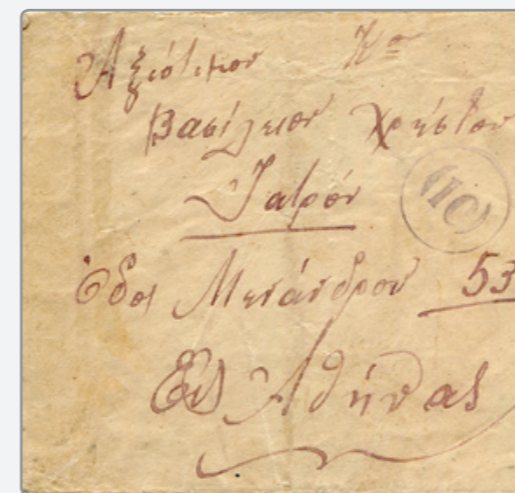 Ἀξιότιμον Κον
Βασίλειον Χρήστου
Ἰατρόν
(10)
Ὁδός Μενάνδρου 53
Εἰς Ἀθήνας